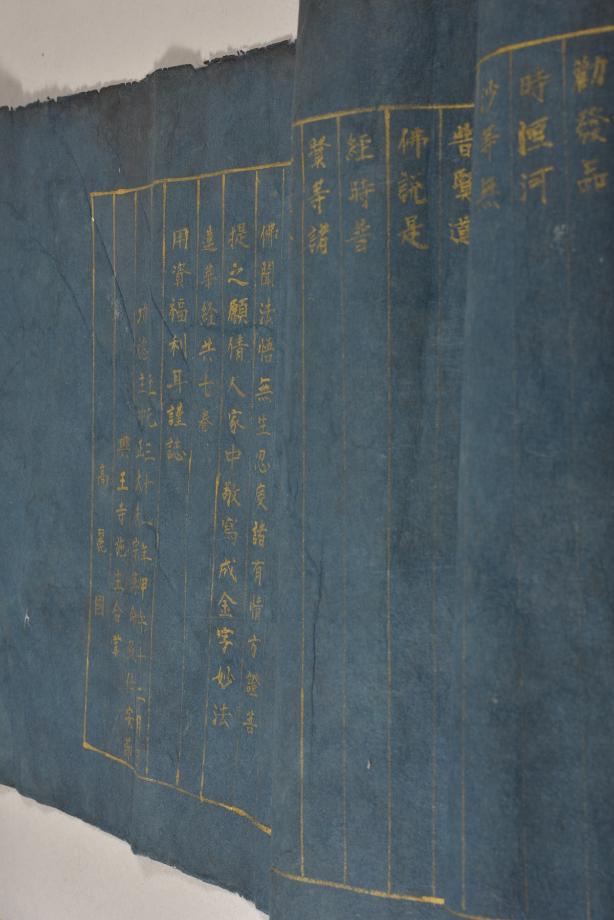 勸發品
時恒河
沙等無
普賢道
佛說是
經時普
賢等諸
佛聞法悟無生忍度諸有情方證菩
提之願倩人家中敬寫成金字妙法
蓮華經共七卷
用資福利耳謹誌
功德主
興王寺
高麗國